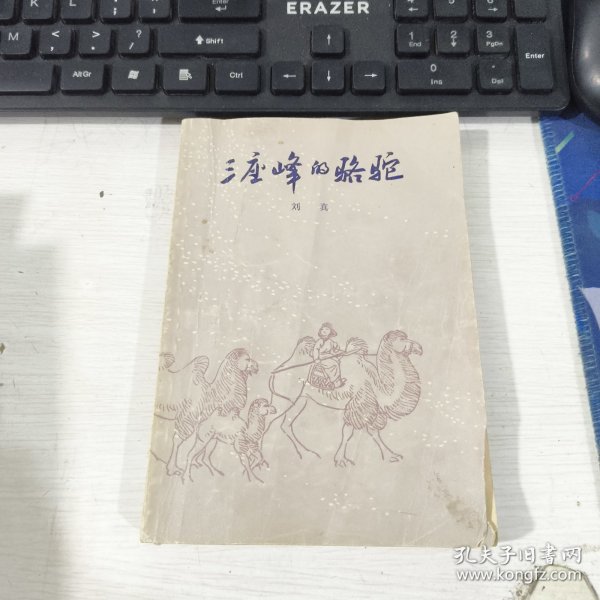 ERAZER
K
L
M
<
,
>
.
?
/
Shift
↑
Enter
1
End
2
↓
3
PgDn
Enter
AltGr
Ctrl
←
↓
→
0
Ins
.
Del
三座峰的骆驼
刘真
孔夫子旧书网
www.kongfz.com